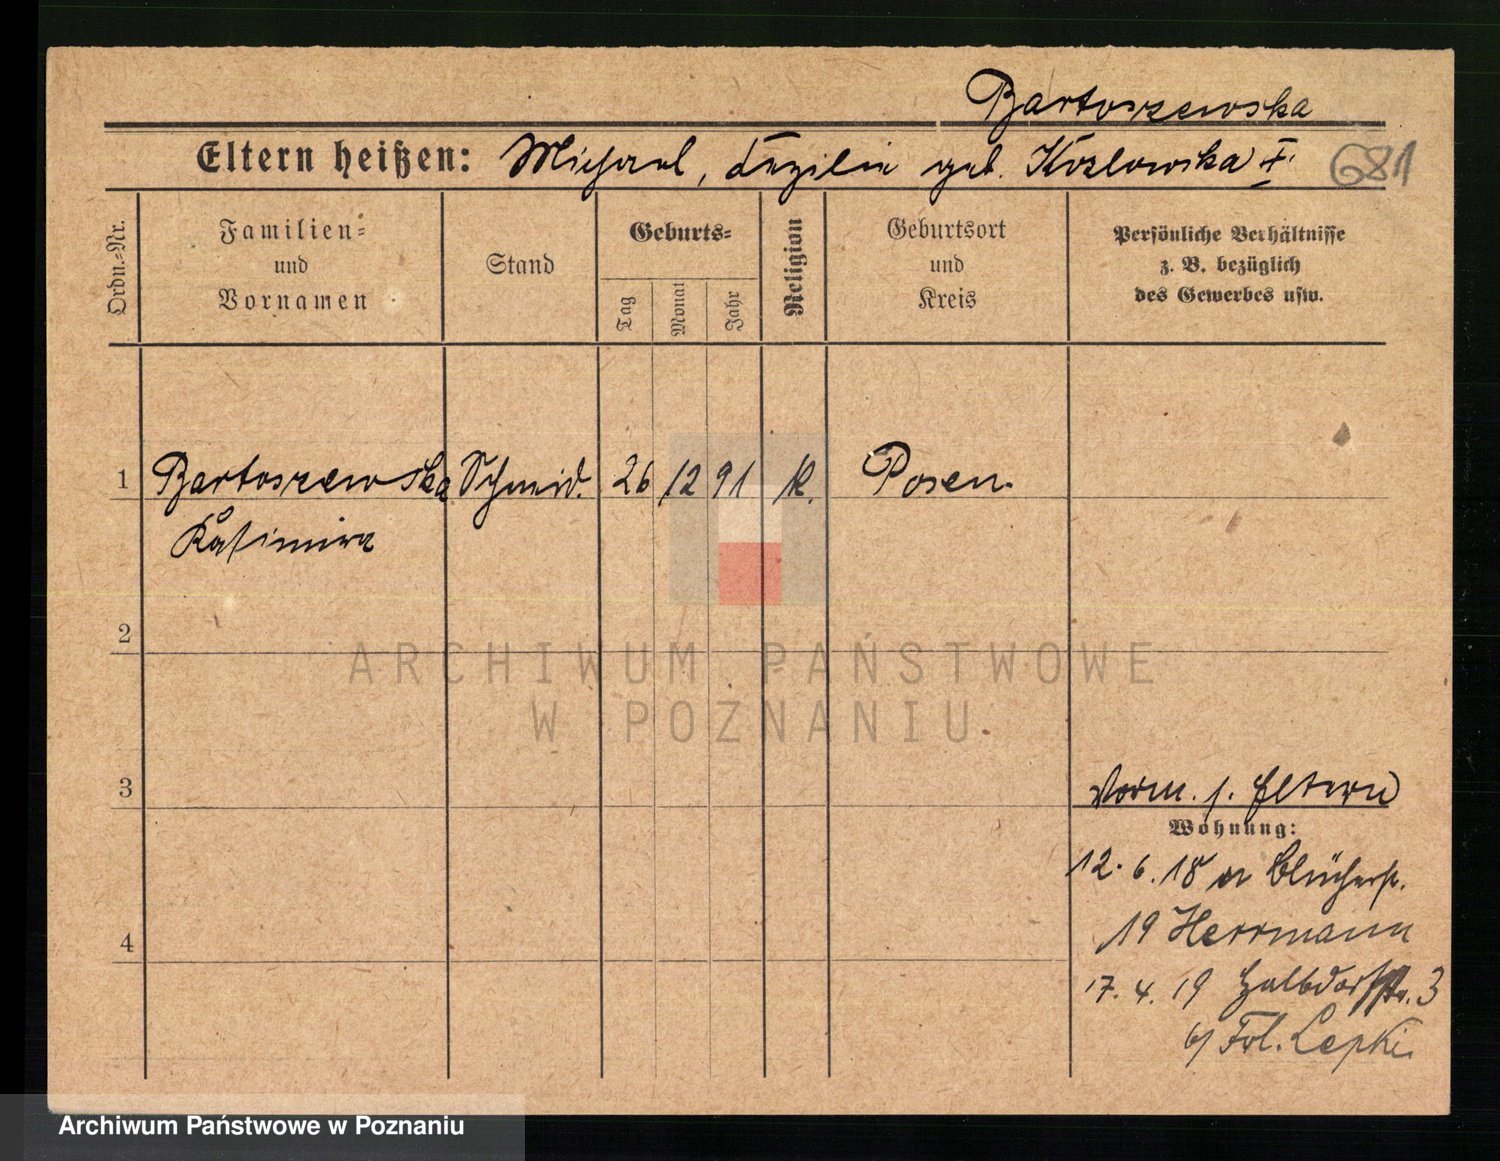 Bartoszewska
Eltern heißen: Michael, Cäzilie geb. Kozlowska †. 681
Ordn.-Nr.
Familien-
und
Vornamen
Stand
Geburts-
Tag
Monat
Jahr
Religion
Geburtsort
und
Kreis
Persönliche Verhältnisse
z. B. bezüglich
des Gewerbes usw.
1 Bartoszewska Schneid. 26 12 91 K. Posen.
Kasimira
2
ARCHIWUM PAŃSTWOWE
W POZNANIU
3
Vorm. s. Eltern
Wohnung:
12. 6. 18 Blücherstr.
19 Herrmann
4
17. 4. 19 Halbdorfstr. 3
b/ Frl. Lepki
Archiwum Państwowe w Poznaniu